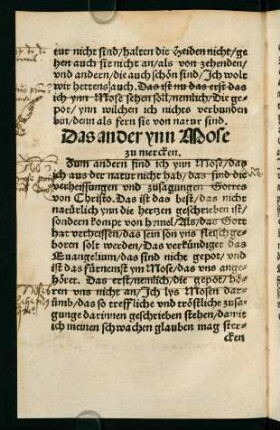 tur nicht sind/halten die Heiden nicht/ge
hen auch sie nicht an/als von zehenden/
vnd andern/die auch schön sind/Ich wolt
wir hettens auch. Das ist nu das erst das
ich ynn Mose sehen soll/nemlich/Die ge-
pot/ynn wilchen ich nichts verbunden
bin/denn als fern sie von natur sind.
Das ander ynn Mose
zu mercken.
Zum andern find ich ynn Mose/das
ich aus der natur nicht hab/das sind die
verheissungen vnd zusagungen Gottes
von Christo. Das ist das best/das nicht
natürlich ynn die hertzen geschrieben ist/
sondern kompt von hymel/Als/das Gott
hat verheissen/das sein son yns fleisch ge-
boren solt werden/Das verkündiget das
Euangelium/das sind nicht gepot/vnd
ist das fürnemst ym Mose/das vns ange-
höret. Das erst/nemlich/die gepot/hö-
ren vns nicht an/Ich lys Mosen dar-
ümb/das so treffliche vnd tröstliche zusa-
gunge darinnen geschrieben stehen/damit
ich meinen schwachen glauben mag ster-
cken